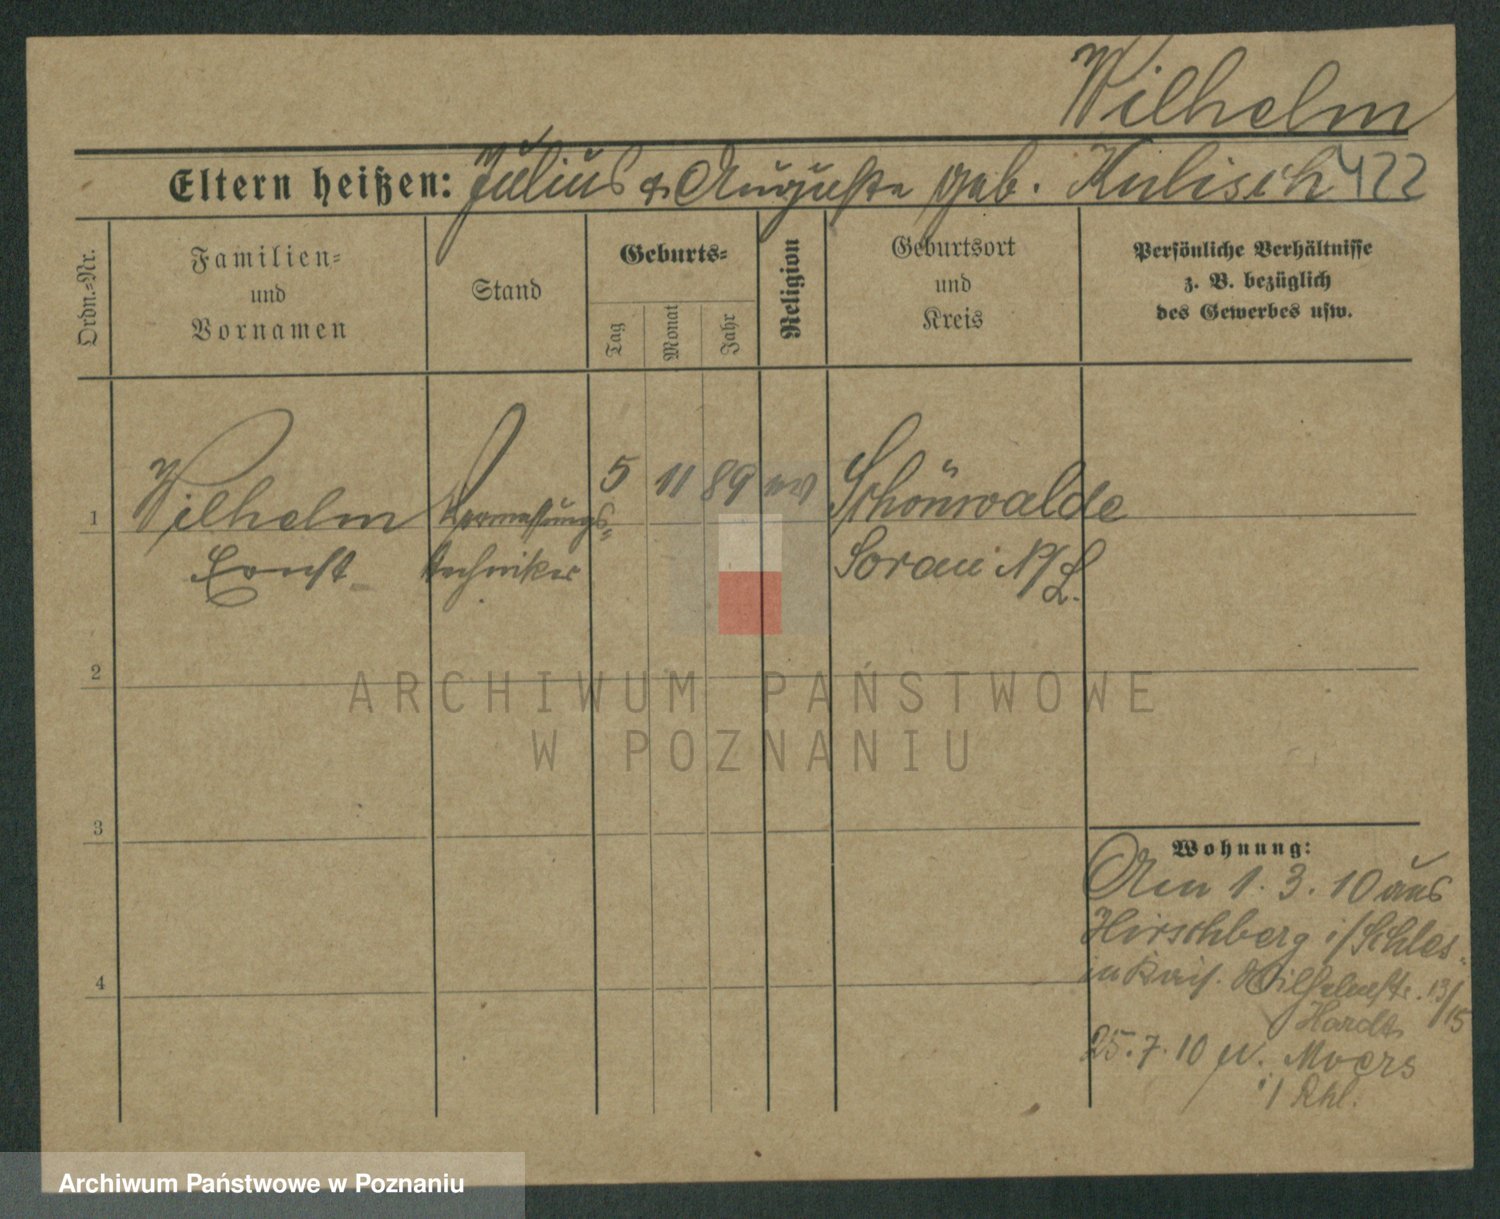 Wilhelm
Eltern heißen: Julius & Auguste geb. Kulisch 422
Ordn.-Nr.
Familien-
und
Vornamen
Stand
Geburts-
Tag
Monat
Jahr
Religion
Geburtsort
und
Kreis
Persönliche Verhältnisse
z. B. bezüglich
des Gewerbes usw.
1 Wilhelm Vermessungs- 5 11 89 ev Schönwalde
Ernst techniker Sorau N/L.
2
3
4
Wohnung:
Am 1. 3. 10 aus
Hirschberg i/Schles.
in Kais. Wilhelmstr. 13/15
Hardt
25. 7. 10 n. Moers
i/Rhl.
ARCHIWUM PAŃSTWOWE
W POZNANIU
Archiwum Państwowe w Poznaniu